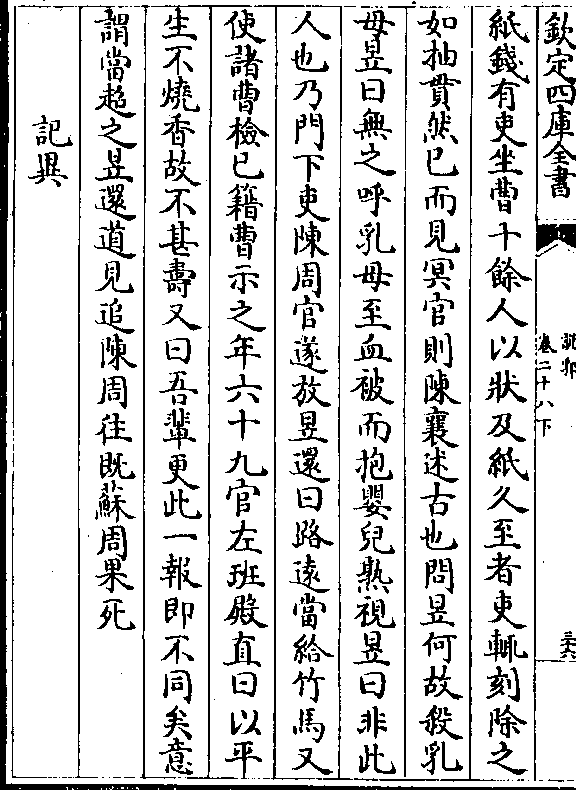 欽定四庫全書
說郛
卷二十八下
三六
紙錢有吏坐曹十餘人以狀及紙久至者吏輒刻除之
如抽貫然已而見冥官則陳襄述古也問昱何故殺乳
母昱曰無之呼乳母至血被而抱嬰兒熟視昱曰非此
人也乃門下吏陳周官遂放昱還曰路遠當給竹馬又
使諸曹檢已籍曹示之年六十九官左班殿直曰以平
生不燒香故不甚壽又曰吾輩更此一報即不同矣意
謂當超之昱還道見追陳周往既蘇周果死
記異